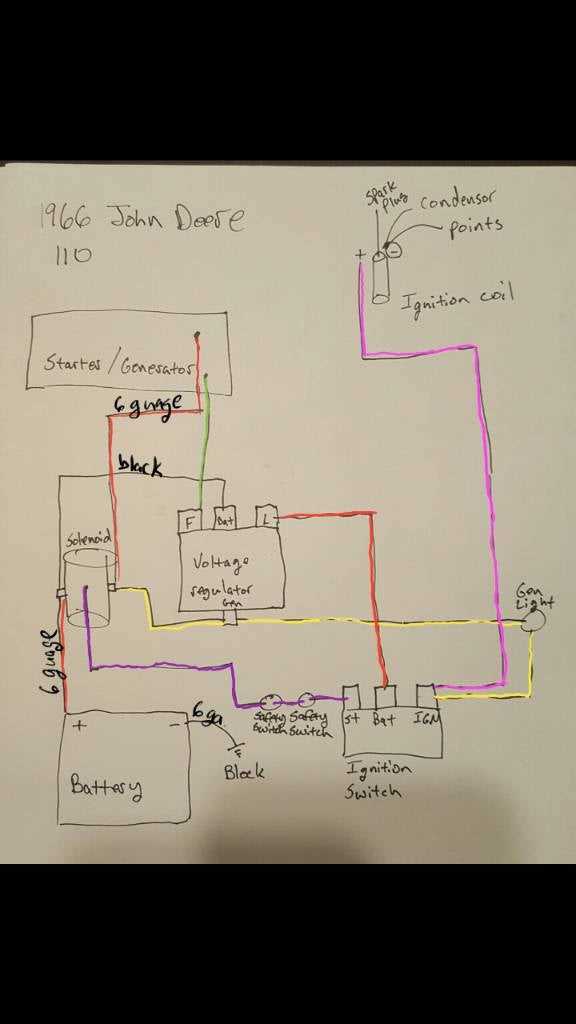 1966 John Deere
110
Spark
plug
condensor
points
+
-
Ignition coil
Starter/Generator
6 guage
black
Solenoid
F
Bat
L
Voltage
regulator
Gen
Gen
Light
6 guage
+
-
6ga.
Block
Battery
Safety
Switch
Safety
Switch
St
Bat
IGN
Ignition
Switch